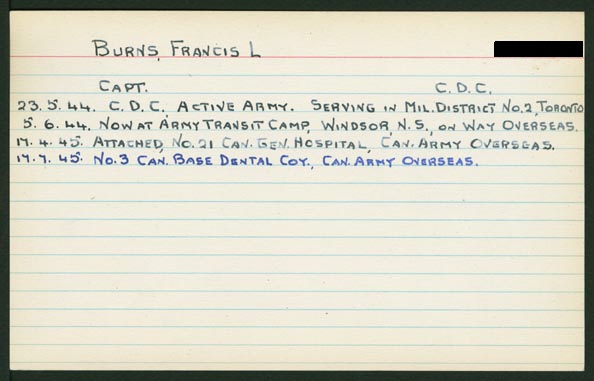 BURNS, FRANCIS L
CAPT. C.D.C.
23.5.44. C.D.C. ACTIVE ARMY. SERVING IN MIL. DISTRICT NO.2, TORONTO
5.6.44. NOW AT ARMY TRANSIT CAMP, WINDSOR, N.S., ON WAY OVERSEAS.
17.4.45. ATTACHED, NO.21 CAN. GEN. HOSPITAL, CAN. ARMY OVERSEAS.
17.7.45. NO.3 CAN. BASE DENTAL COY., CAN. ARMY OVERSEAS.